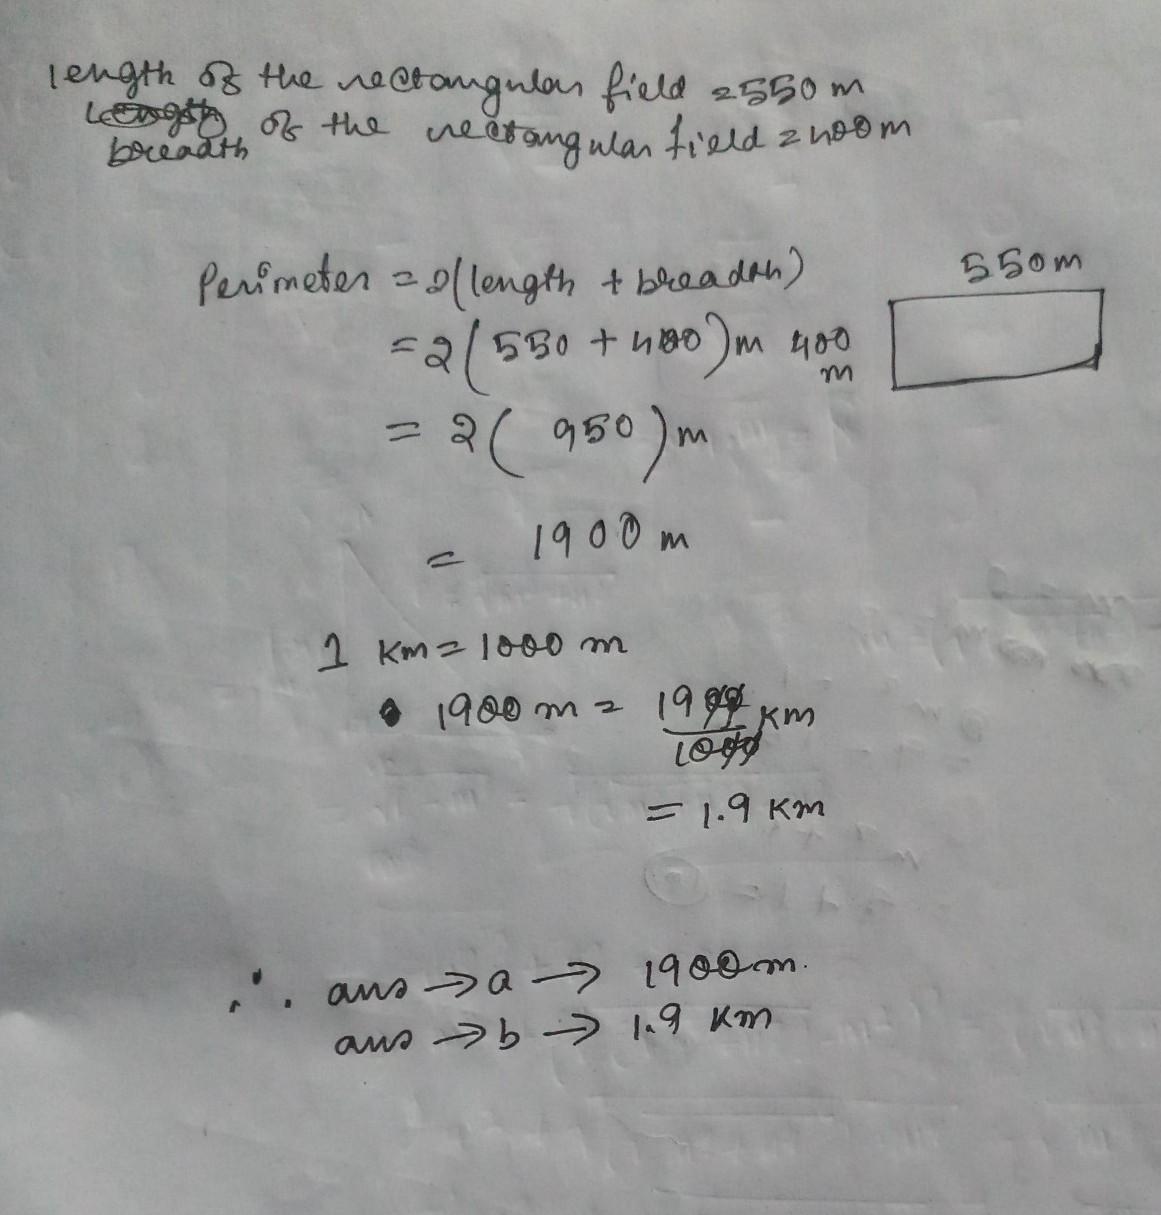 length of the rectangular field = 550 m
breadth of the rectangular field = 400 m
Perimeter = 2(length + breadth)
= 2(550 + 400)m
= 2(950)m
= 1900 m
550m
400
m
1 Km = 1000 m
1900 m = 1900/1000 Km
= 1.9 Km
∴ ans → a → 1900m.
ans → b → 1.9 Km